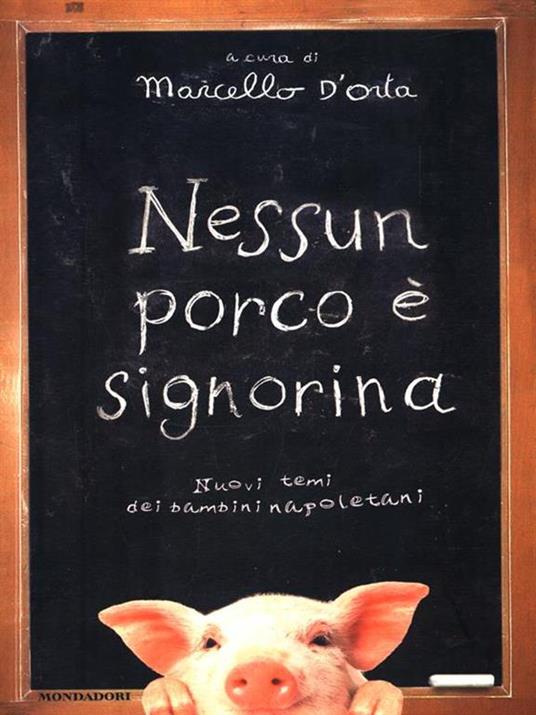 a cura di
Marcello D'Orta
Nessun
porco è
signorina
Nuovi temi
dei bambini napoletani
MONDADORI